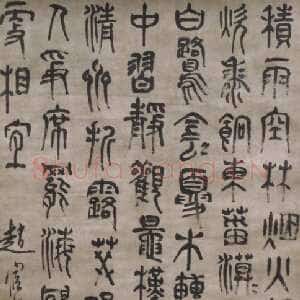 積雨空林烟火
炊黍餉東菑漠
白鷺陰〻夏木轉
中習靜觀朝槿
清齋折露葵
人爭席罷海鷗
更相疑
趙宧